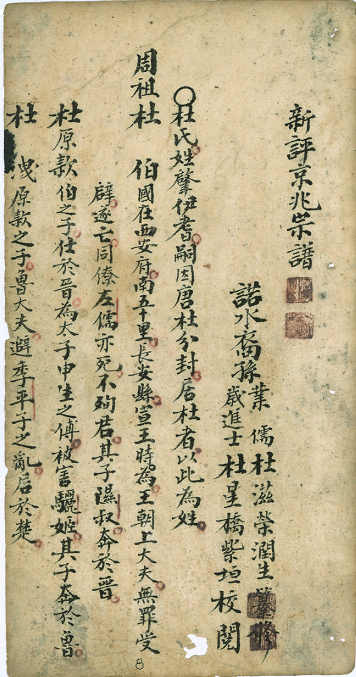 新評京兆宗譜
諾水裔孫業儒杜滋榮潤生
歲進士杜星橋紫垣校閱
○杜氏姓肇伊耆嗣因唐杜分封居杜者以此為姓
周祖杜 伯國在西安府南五十里長安縣宣王時為王朝上大夫無罪受
辟遂亡同僚左儒亦死不殉君其子隰叔奔於晉
杜原款伯之子仕於晉為太子申生之傅被害驪姬其子奔於魯
杜洩原款之子魯大夫避季平子之亂居於楚
8